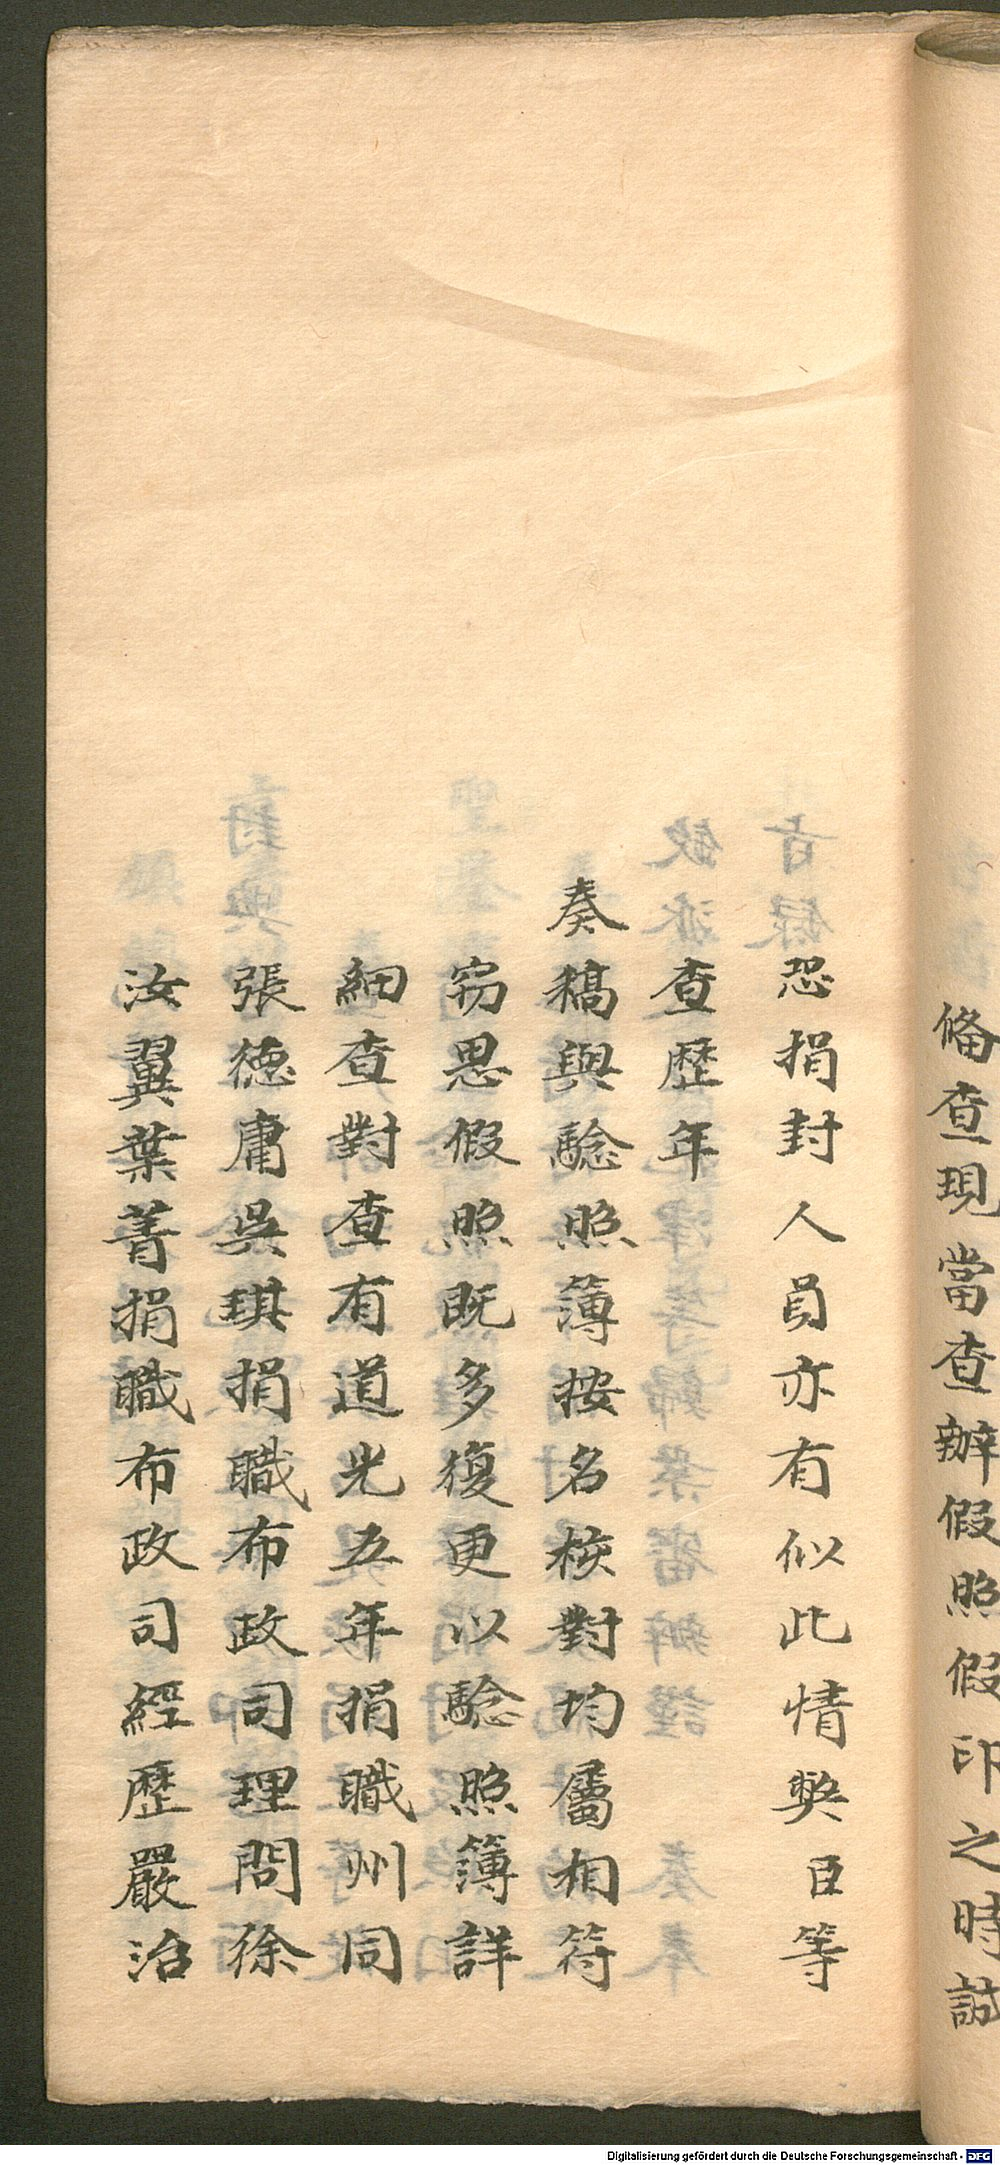 俻查現當查辦假照假印之時誠
恐捐封人員亦有似此情獘臣等
查歷年
奏稿與騐照簿按名核對均屬相符
竊思假照既多復更以騐照簿詳
細查對查有道光五年捐職州同
張德庸吳琪捐職布政司理問徐
汝翼葉菁捐職布政司經歷嚴治
Digitalisierung gefördert durch die Deutsche Forschungsgemeinschaft - DFG